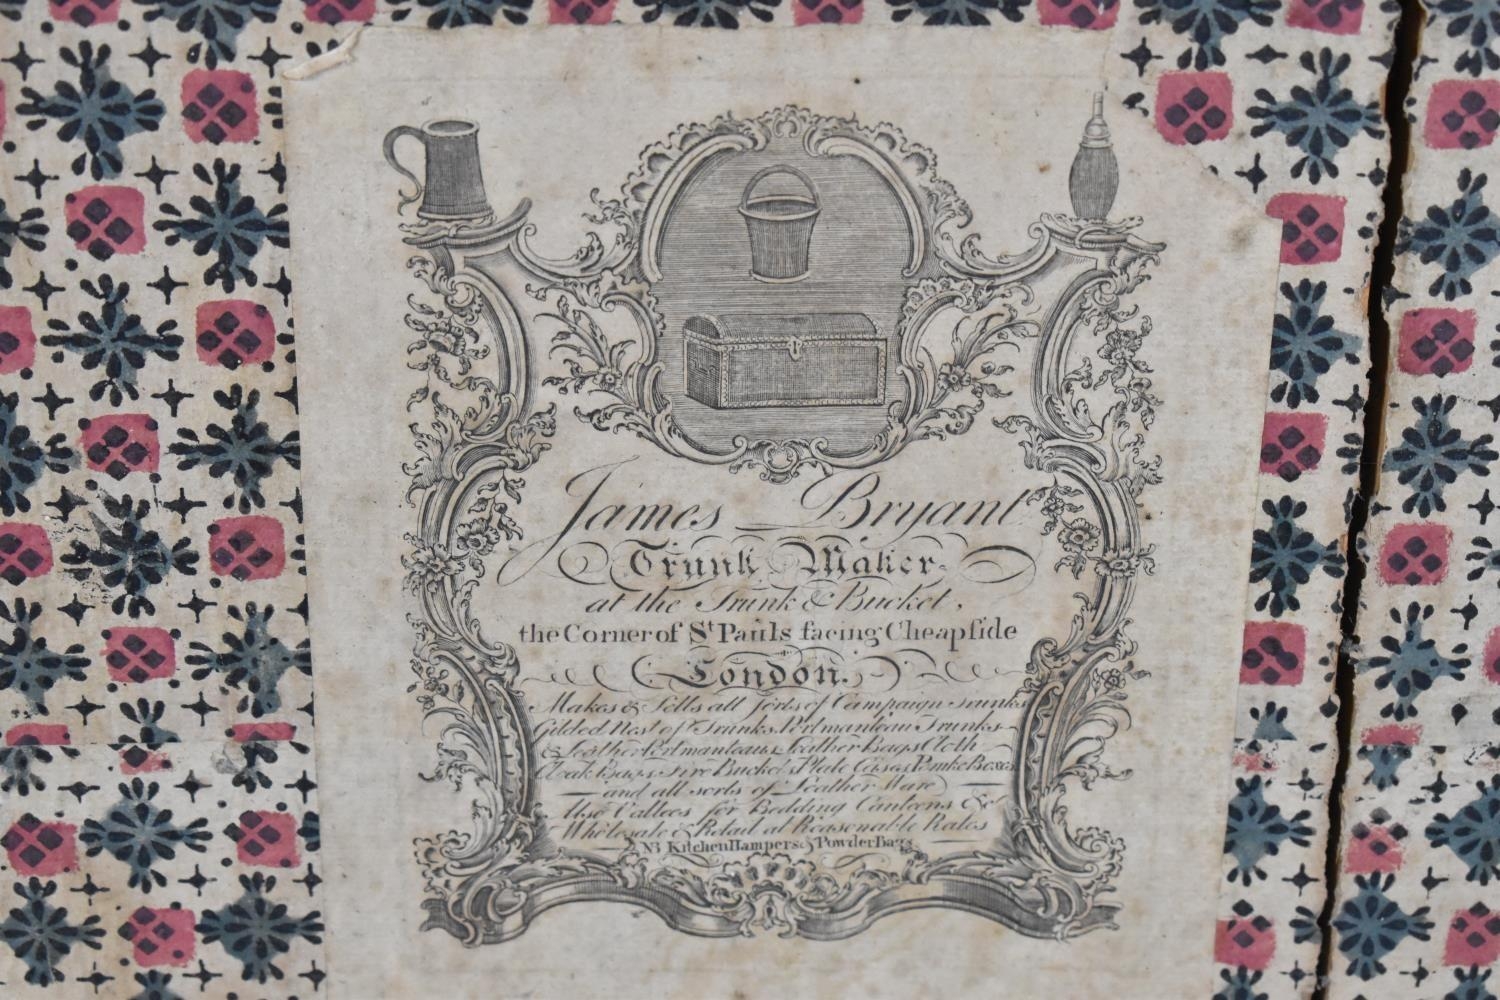 James Bryant
Trunk Maker
at the Trunk & Bucket,
the Corner of St Pauls facing Cheapside
London.
Makes & Sells all sorts of Campaign Trunks
Gilded Nest of Trunks, Portmanteau Trunks
& Leather Portmanteaus, Leather Bags, Cloth
Cloak Bags, Fire Buckets, Plate Cases, Peruke Boxes
and all sorts of Leather Ware
Also Vallees for Bedding Canteens &c
Wholesale & Retail at Reasonable Rates
NB Kitchen Hampers & Powder Bags